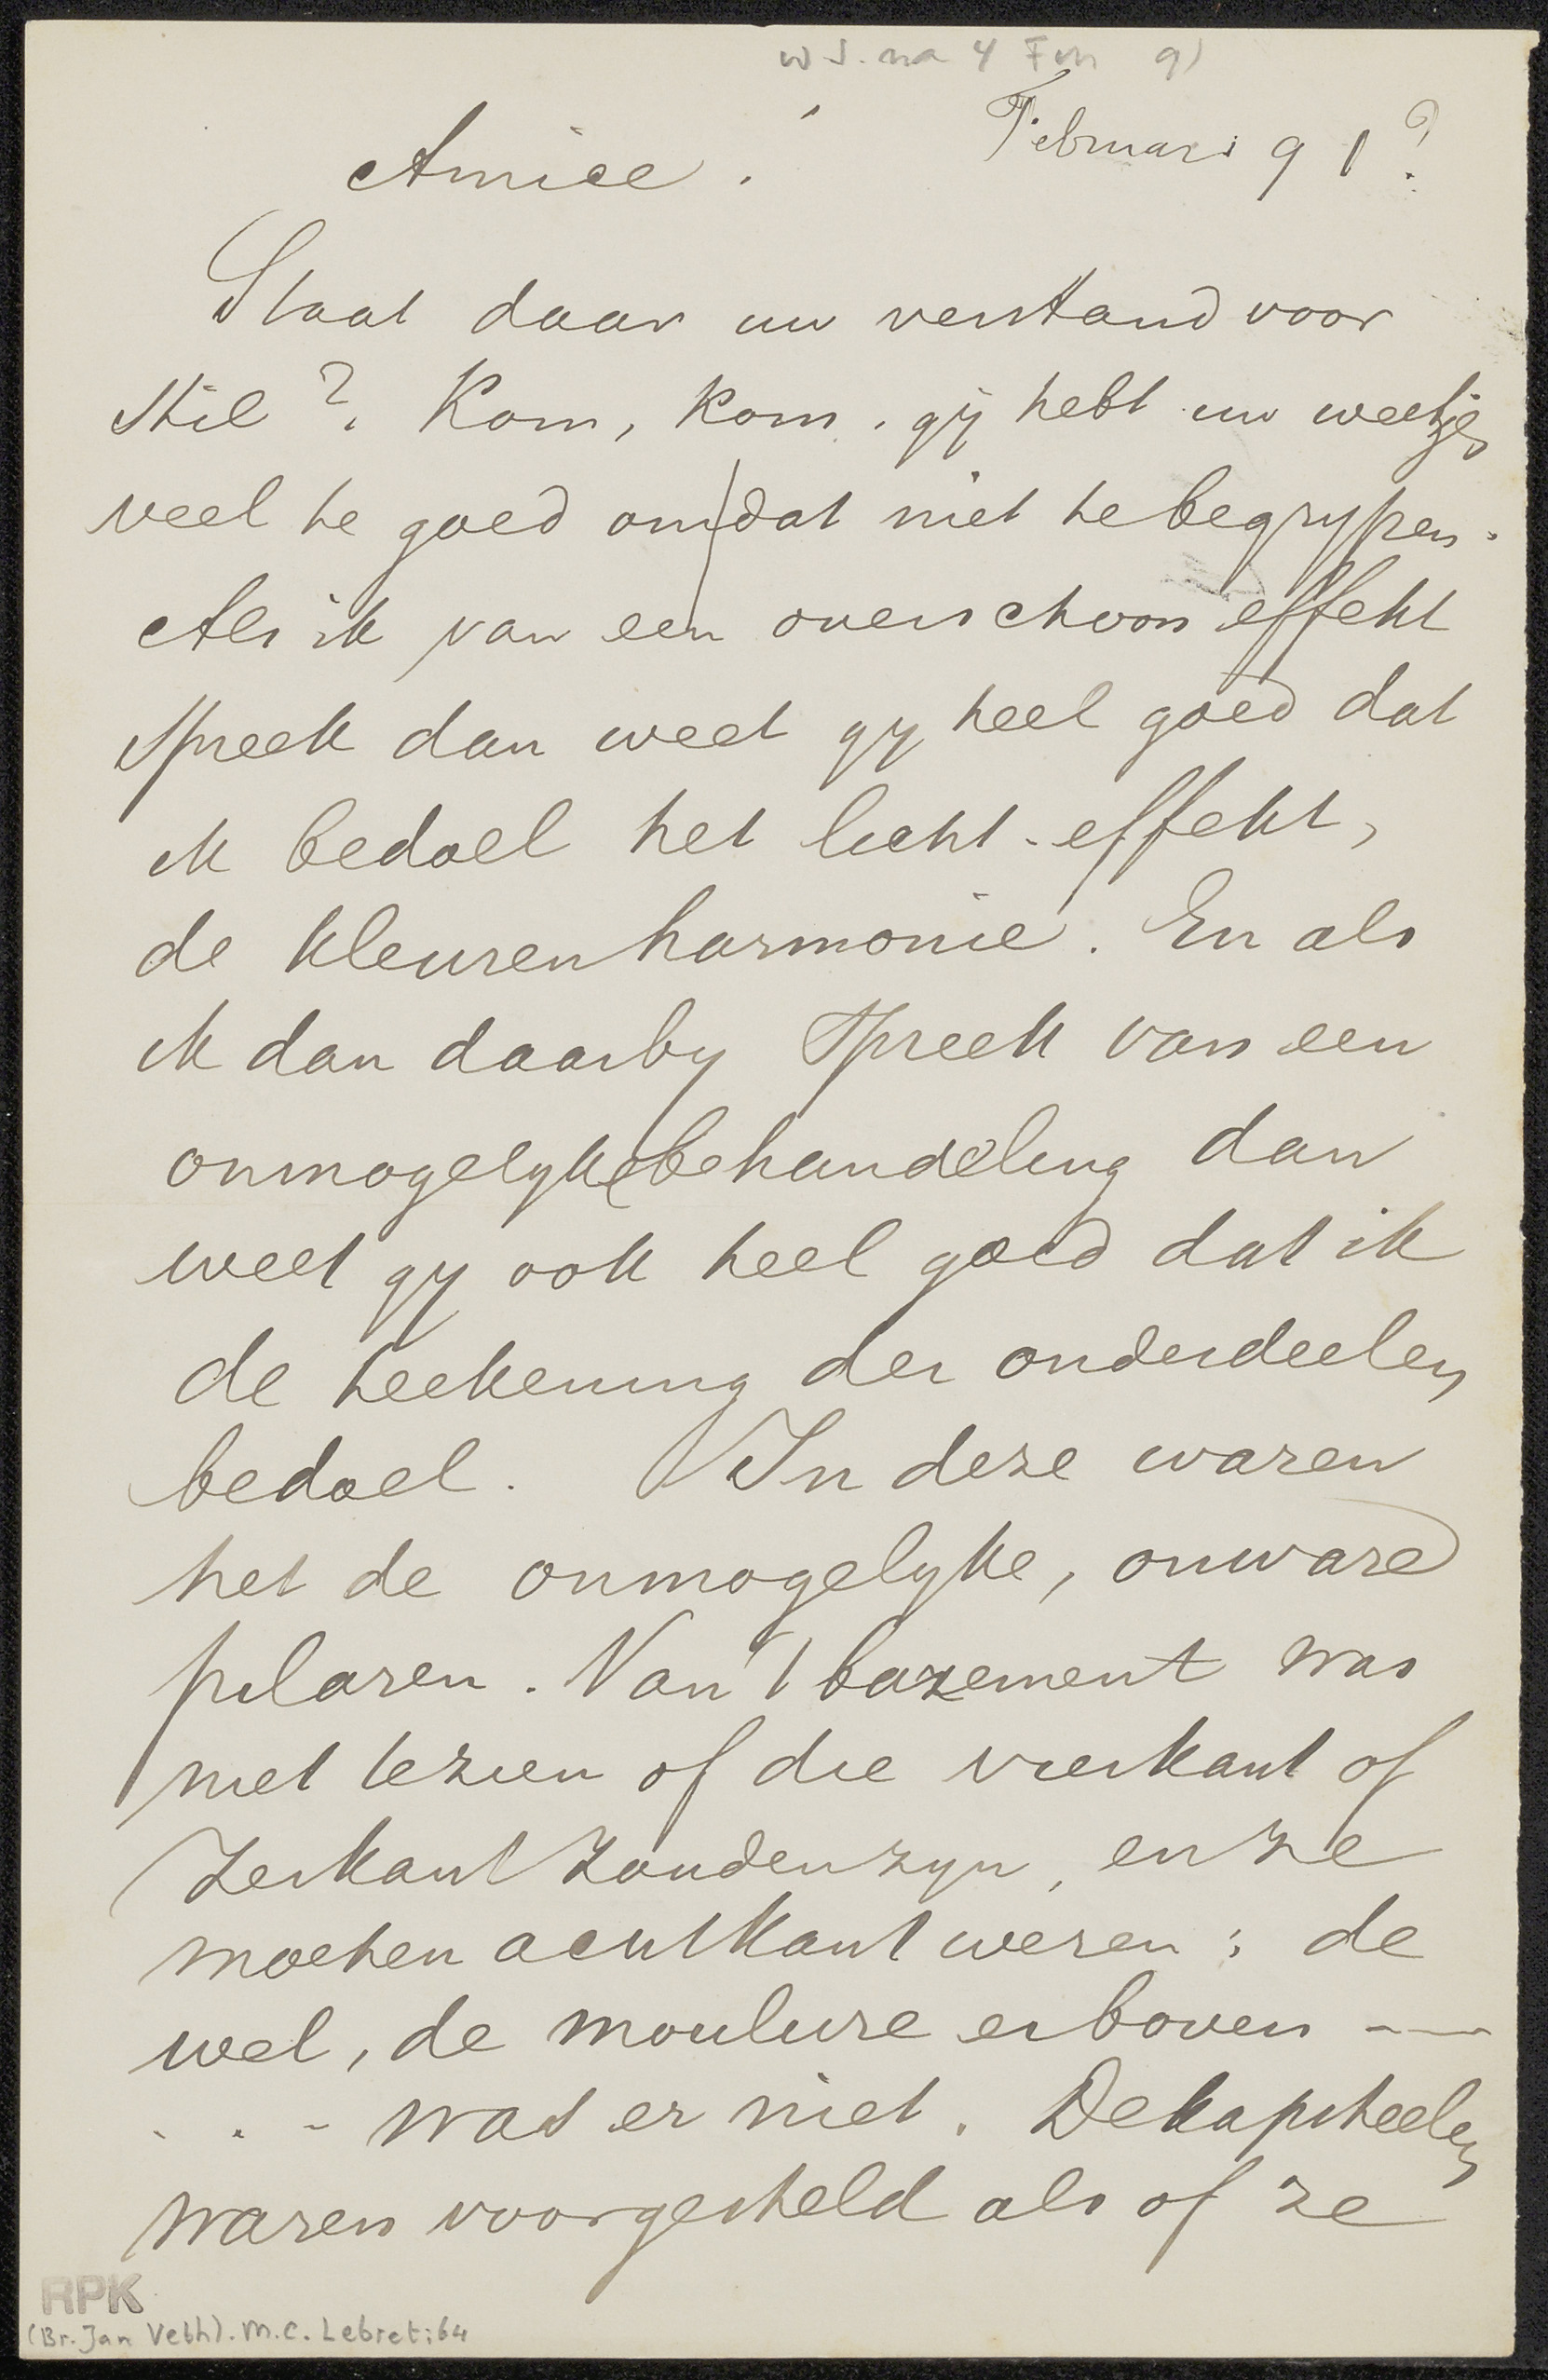 na 4 Feb 91
Februari 91?
Amice.
Staat daar uw verstand voor
stil? Kom, kom, gij hebt uw weetjes
veel te goed om dat niet te begrypen.
Als ik van een overschoon effekt
spreek dan weet gy heel goed dat
ik bedoel het licht-effekt,
de kleurenharmonie. En als
ik dan daarby spreek van een
onmogelyke behandeling dan
weet gy ook heel goed dat ik
de teekening der onderdeelen
bedoel. In deze waren
het de onmogelyke, onware
pilaren. Van 't bazement was
niet te zien of die vierkant of
zeskant zouden zyn, en ze
moeten achtkant wezen; de
wel, de moulure erboven —
. . - was er niet. De kapiteelen
waren voorgesteld als of ze
RPK
(Br. Jan Veth). M.C. Lebret: 64